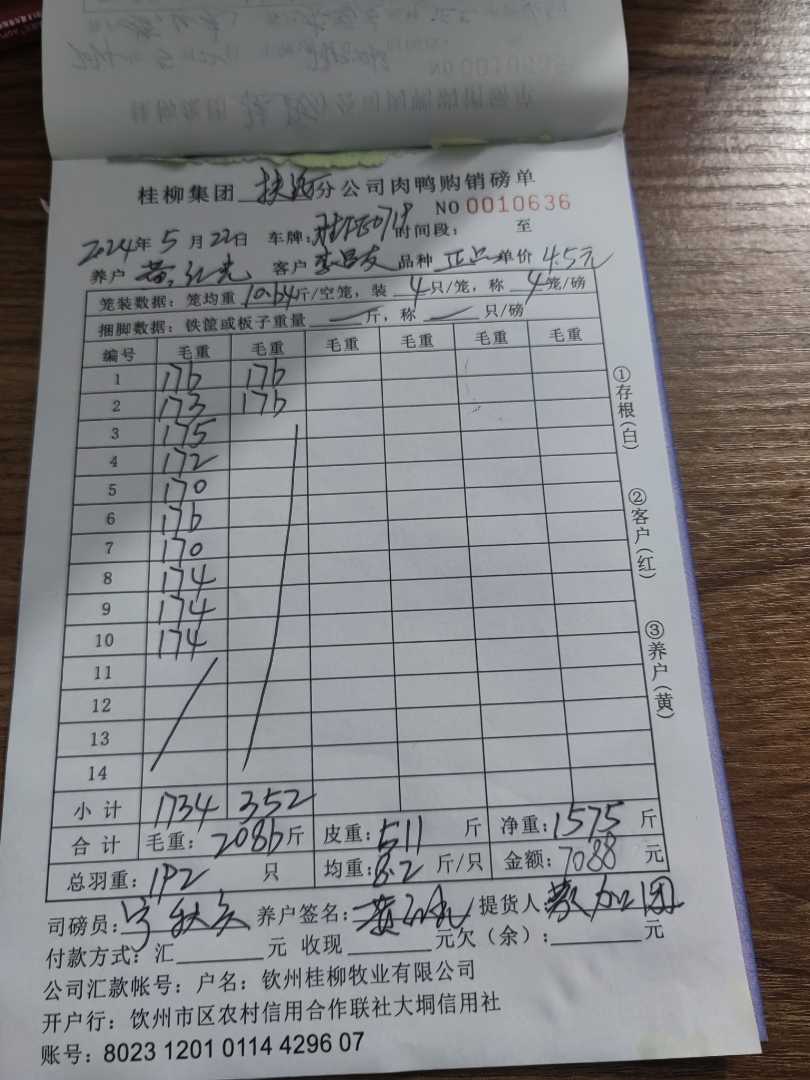 桂柳集团 分公司肉鸭购销磅单
NO 0010636
2024年5月22日 车牌: 时间段: 至
养户 黄 客户 李昌友 品种 正品 单价 4.5元
笼装数据: 笼均重 10.64斤/空笼, 装 4只/笼, 称 4笼/磅
捆脚数据: 铁筐或板子重量 斤, 称 只/磅
编号 毛重 毛重 毛重 毛重 毛重 毛重
1 176 176
2 173 176
3 175
4 172
5 170
6 176
7 170
8 174
9 174
10 174
11
12
13
14
小计 1734 352
合计 毛重: 2086斤 皮重: 511 斤 净重: 1575 斤
总羽重: 192 只 均重: 8.2 斤/只 金额: 7088 元
司磅员: 养户签名: 提货人:
付款方式: 汇 元 收现 元欠(余): 元
公司汇款帐号: 户名: 钦州桂柳牧业有限公司
开户行: 饮州市区农村信用合作联社大垌信用社
账号: 8023 1201 0114 4296 07
①存根(白)
②客户(红)
③养户(黄)